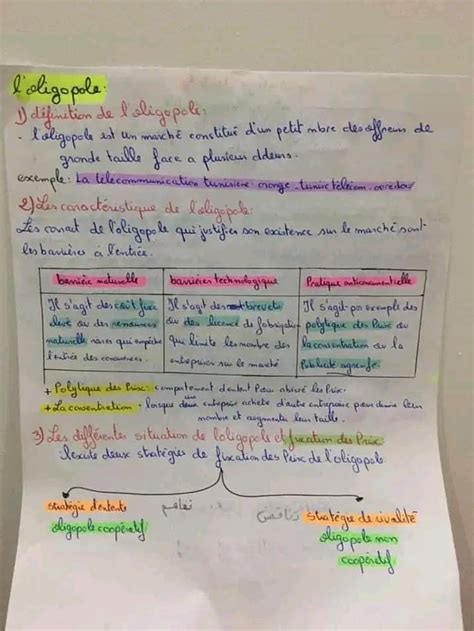 l'oligopole:
1) définition de l'oligopole:
- l'oligopole est un marché constitué d'un petit nbre des offreurs de
grande taille face a plusieurs ddeurs.
exemple: La télécommunication tunisiène: orange - tunisie télécom - ooredoo
2) Les caractéristique de l'oligopole:
Les caract de l'oligopole qui justifier son existence sur le marché sont
les barrières à l'entrée.
barrière naturelle
barrières technologique
Pratique anticoncurentielle
Il s'agit des coût fixe
élevé ou des ressources
naturelle rares qui empêche
l'entrée des concurrences.
Il s'agit des brevets
ou des licence de fabrication
qui limite les nombre des
entreprises sur le marché
Il s'agit par exemple des
polytique des Prix ou
la consentration ou la
Publicité agressife
+ Polytique des Prix: comportement d'entent Pour
+ La consentration: lorsque deux entreprise achète d'autre entreprise pour leur
nombre et augmenter leur taille.
3) Les différentes situation de l'oligopole et fixation des Prix
l'existe deux stratégies de fixation des Prix de l'oligopole
stratégie d'entente
oligopole coopératif
تفاهم
تنافس
stratégie de rivalité
oligopole non
coopératif